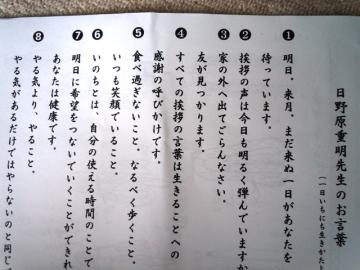 日野原重明先生のお言葉
(一日いちにち生きかた
❶ 明日。来月。まだ来ぬ一日があなたを
待っています。
❷ 挨拶の声は今日も明るく弾んでいますか
❸ 家の外へ出てごらんなさい。
友が見つかります。
❹ すべての挨拶の言葉は生きることへの
感謝の呼びかけです。
❺ 食べ過ぎないこと。なるべく歩くこと。
いつも笑顔でいること。
❻ いのちとは、自分の使える時間のことで
❼ 明日に希望をつないでいくことができれ
あなたは健康です。
❽ やる気より、やること。
やる気があるだけではやらないのと同じで